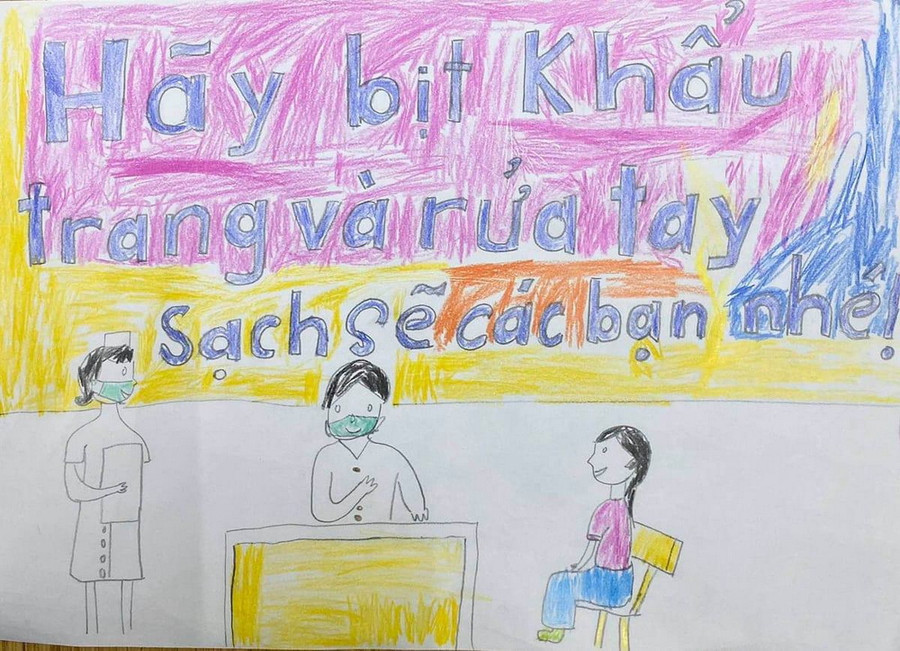 Hãy bịt Khẩu
trang và rửa tay
Sạch sẽ các bạn nhé!